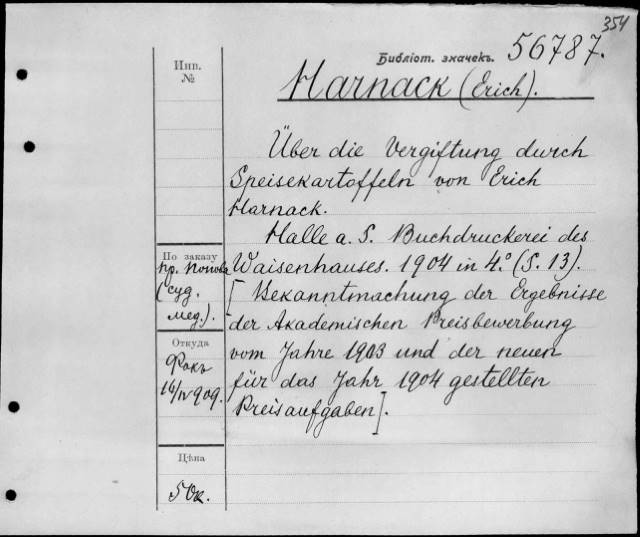 354
Библіот. значекъ. 56787.
Инв.
№
Harnack (Erich).
Über die Vergiftung durch
Speisekartoffeln von Erich
Harnack.
Halle a. S. Buchdruckerei des
Waisenhauses. 1904 in 4.° (S. 13).
[Bekanntmachung der Ergebnisse
der Akademischen Preisbewerbung
vom Jahre 1903 und der neuen
für das Jahr 1904 gestellten
Preisaufgaben].
По заказу
пр. Попова
(суд.
мед.).
Откуда
Фокъ
16/IV 909.
Цѣна
50к.